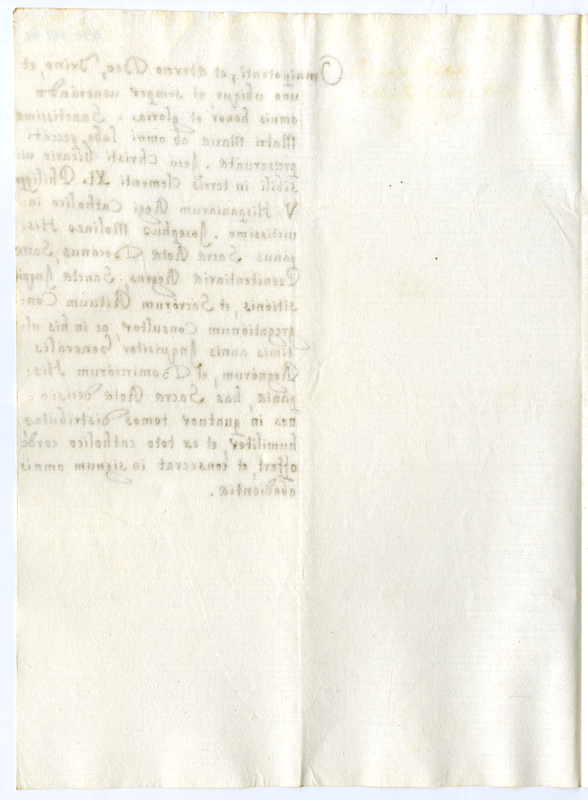 Omnipotenti, et æterno Deo, Trino, et
uno ubique, et semper venerando
omnis honor et gloria. Sanctissimæ
Matri Mariæ ab omni labe peccati
preservata. Jesu Christi Vicario vi:
sibili in terris Clementi XI. Philippo
V Hispaniarum Regi Catholico in:
victissimo. Josephus Molines His:
panus Sacra Rota Decanus, Sacra
Penitentiaria Regens, Sancta Inqui
sitionis, et Sacrorum Rituum Con:
gregationum Consultor, ac in his ul:
timis annis Inquisitor Generalis
Regnorum, et Dominiorum His:
pania, has Sacra Rota decisio=
nes in quatuor tomos distributas
humiliter, et ex toto catholico corde
offert, et consecrat in signum omnis
obedientiæ.